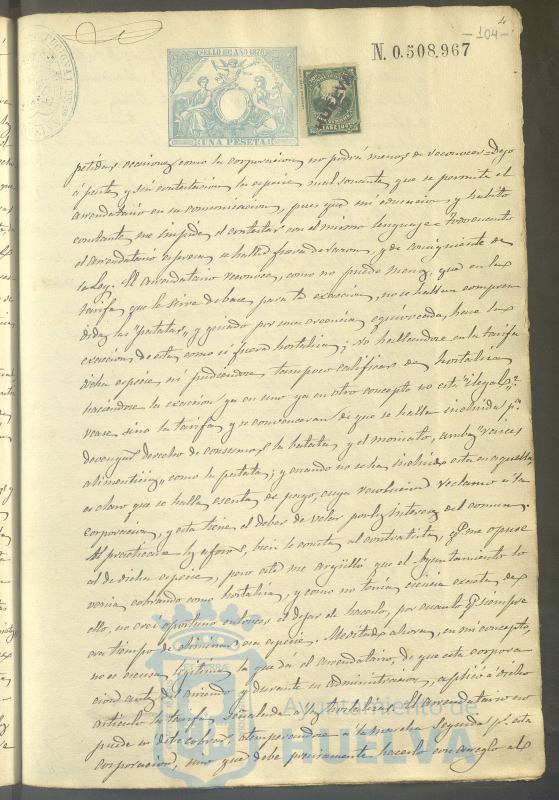 4
-104-
SELLO 11º AÑO 1878
UNA PESETA
HUELVA
N. 0.508.967
petidas ocasiones como la corporacion no podrá menos de reconocer. Dejo
á parte, y sin contestacion la especie mal sonante que se permite el
arrendatario en su comunicacion, pues que mi educacion y hábito
constante me impide el contestar con el mismo lenguaje. En cuanto
el arrendatario espresa se halla fuera de razon, y de consiguiente de
la ley. El arrendatario reconoce, como no puede menos, que en la
tarifa que le sirve de base para la exaccion, no se hallan compren
didas las "patatas", y guiado por una creencia equivocada, hace la
exaccion de esta como si fuera hortaliza; no hallandose en la tarifa
dicha especie ni pudiendose tampoco calificar de hortaliza
haciendose la exaccion ya en uno ya en otro concepto no está "ilegal"?
vease sino la tarifa y se convenceran de que se halla incluida pª
devengar derecho de consumos la batata y el moniato, ambas raices
alimenticias como la patata; y cuando no se ha incluido esta en aquella,
es claro que se halla esenta de pago, cuya resolucion reclamo a la
corporacion, y esta tiene el deber de velar por los intereses del comun.
Al practicarse los aforos, bien le consta al contratista, qe. me opuse
al de dicha especie, pero este me arguyó que el Ayuntamiento lo
venia cobrando como hortaliza, y como no tenia ciencia exacta de
ello, no creí oportuno entonces el dejar de hacerlo, por cuanto qe. siempre
era tiempo de eliminar esa especie. Meditado ahora, en mi concepto,
no es escusa legitima la que dá el arrendatario, de que esta corpora
cion antes del arriendo y durante su administracion, aplicó á dicho
articulo la tarifa señalada a las hortalizas. El arrendatario no
puede en debito cobrar atemperandose a la marcha seguida pr. esta
corporacion, sino que debe precisamente hacerlo con arreglo al
Ayuntamiento de
HUELVA